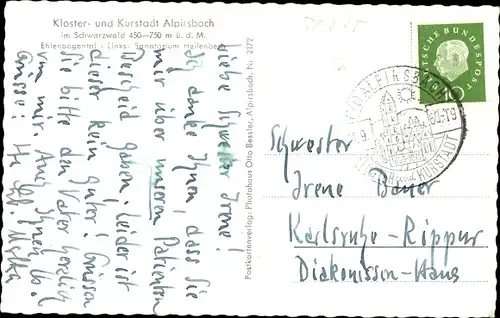 Kloster- und Kurstadt Alpirsbach
im Schwarzwald 450—750 m ü. d. M.
Ehlenbogental - Links: Sanatorium Heilenberg
Liebe Schwester Irene!
Ich danke Ihnen, dass Sie
mir über unseren Patienten
Bescheid gaben. Leider ist
dieser kein Guter! Grüssen
Sie bitte den Vater herzlich
von mir. Auch Ihnen lb.
Grüsse! Ihr
Postkartenverlag: Photohaus Otto Bessler, Alpirsbach, Nr. 2172
DEUTSCHE BUNDESPOST
ALPIRSBACH
Schwester
Irene Bauer
Karlsruhe-Rippur
Diakonissen-Haus